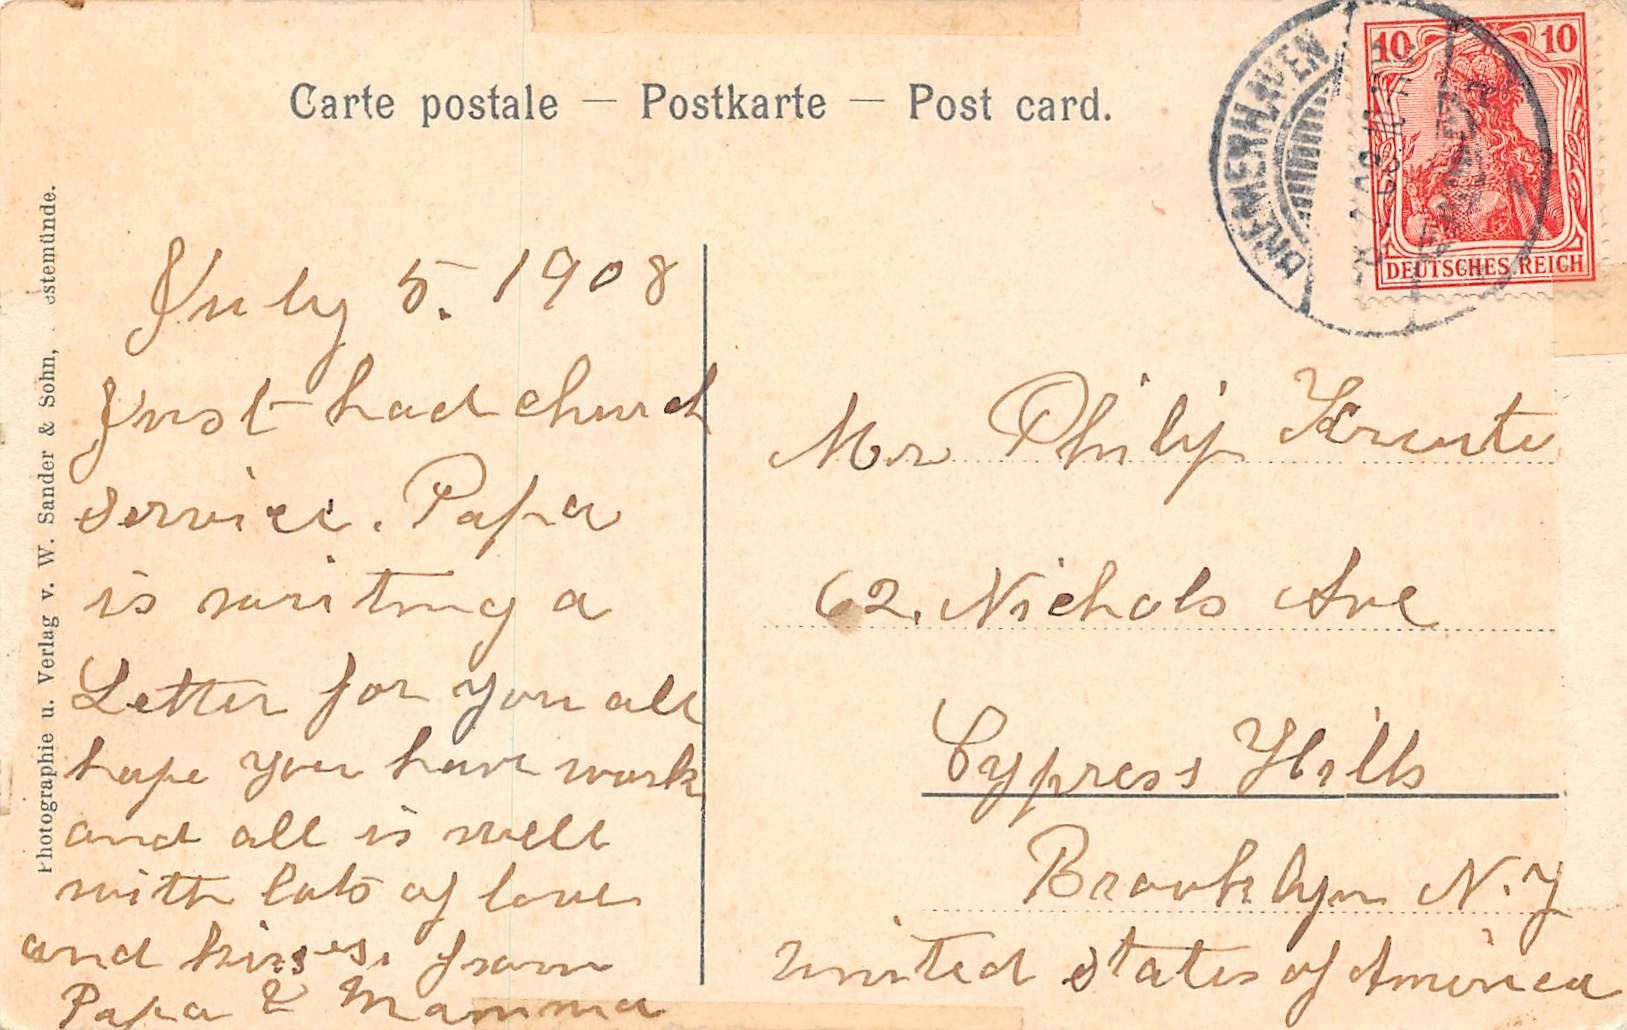 Carte postale — Postkarte — Post card.
BREMERHAVEN
10 10
DEUTSCHES REICH
Photographie u. Verlag v. W. Sander & Sohn, estemünde.
July 5. 1908
Just had church
service. Papa
is writing a
Letter for you all
hope you have work
and all is well
with lots of love
and kisses. from
Papa & Mamma
Mr Philip
62. Nichols Ave
Cypress Hills
Brooklyn N.Y
United States of America